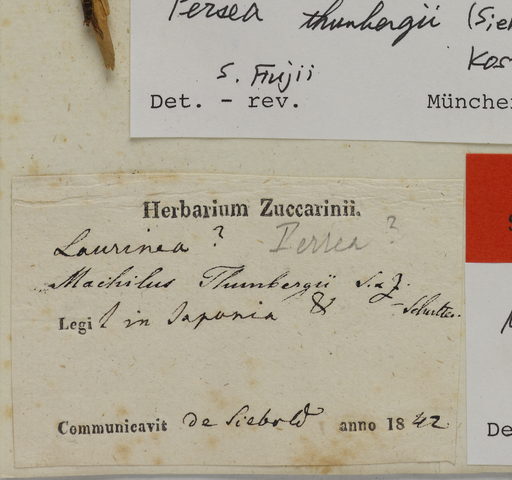 Persea thunbergii (Sie
Kos
S. Fujii
Det. - rev. Münche
Herbarium Zuccarinii.
Laurinea ? Persea ?
Machilus Thunbergii S. & Z.
Legit in Japonia
Communicavit de Siebold anno 1842
De